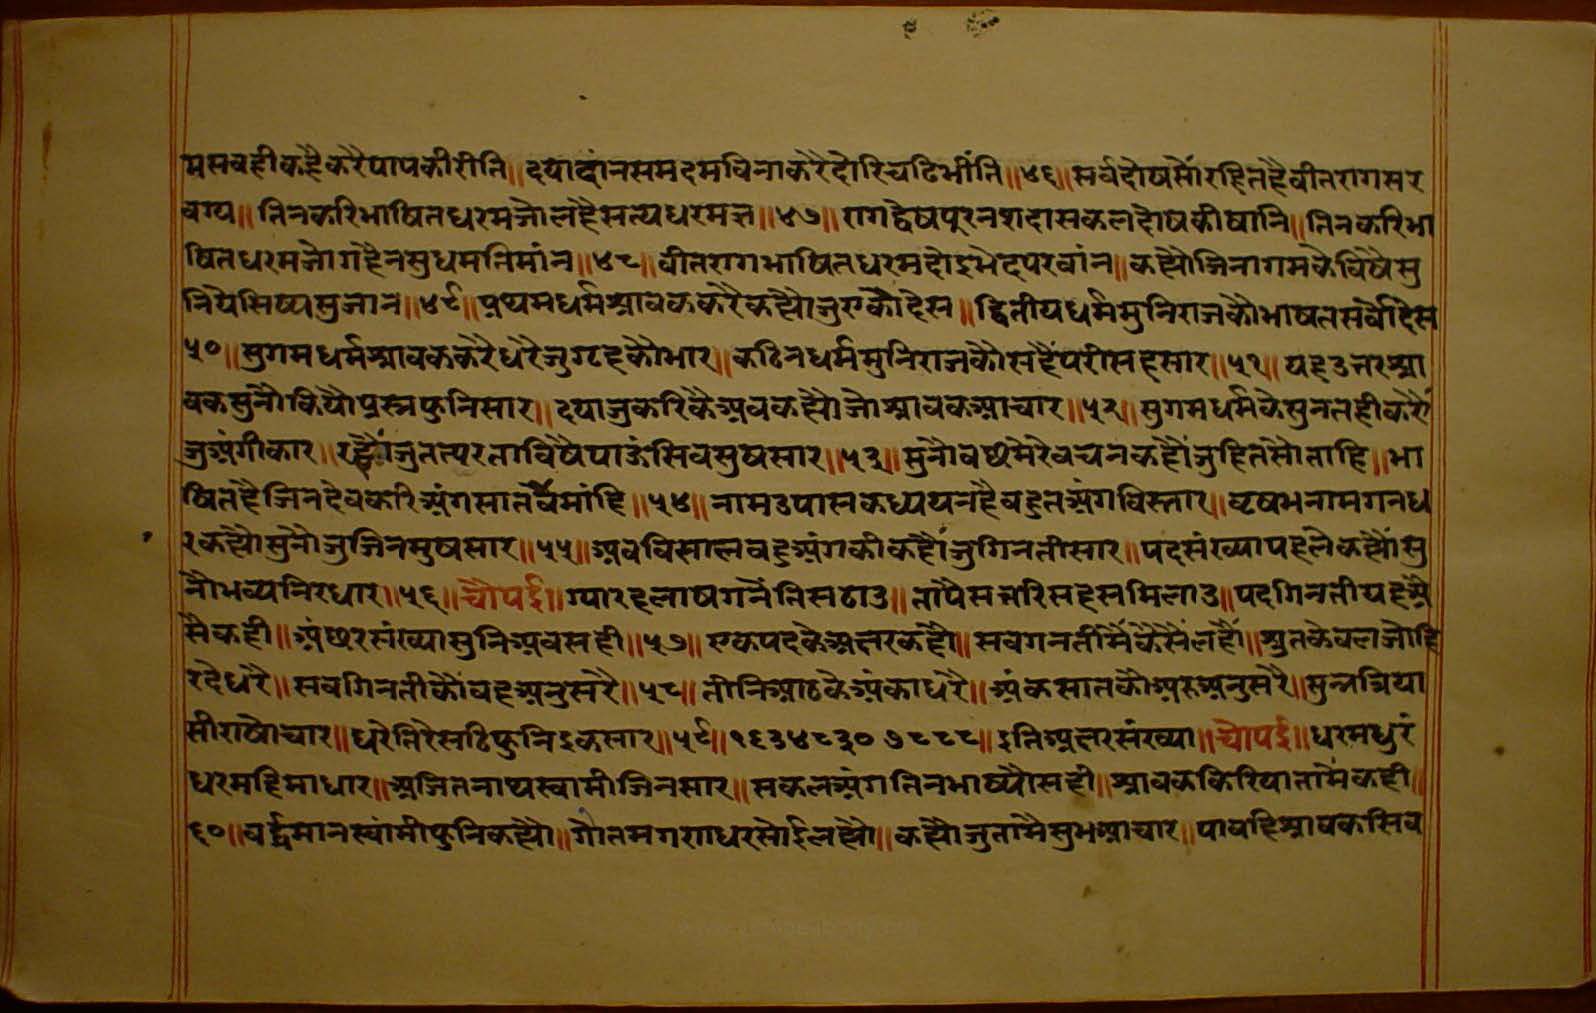 मसबहीकहैकरैपापकीरीति॥दयादांनसमदमविनाकरैदोरिचटिभींति॥४६॥सर्वदोषसौंरहितहैवीतरागसर
वग्य॥तिनकरिभाषितधरमजोलहैसत्यधरमज्ञ॥४७॥रागद्वेषपूरनशदासकलदोषकीषानि॥तिनकरिभा
षितधरमजोगहैनसुधमतिमांन॥४८॥वीतरागभाषितधरमदोइभेदपरवांन॥कह्यौजिनागमकेविषैसु
निपैसिष्यसुजान॥४९॥प्रथमधर्मश्रावककरैकह्यौजुएकोदेस॥द्वितीयधर्ममुनिराजकौभाषतसर्वोदेस
५०॥सुगमधर्मश्रावककरैधरैजुग्रहकौभार॥कठिनधर्ममुनिराजकौसहैंपरीसहसार॥५१॥यहउत्तरश्रा
वकसुनौकियौप्रस्नफुनिसार॥दयाजुकरिकैअबकह्यौजोश्रावकआचार॥५२॥सुगमधर्मकेसुनतहीकरौं
जुअंगीकार॥रह्यौंजुतत्परताविषैपाऊंसिवसुषसार॥५३॥सुनौवछमेरेवचनकहौंजुहितसौताहि॥भा
षितहैजिनदेवकरिअंगसातवैमांहि॥५४॥नामउपासकध्ययनहैबहुतअंगविस्तार॥वृषभनामगनध
रकह्यौसुनौजुजिनमुषसार॥५५॥अबविसालबहुअंगकीकहौंजुगिनतीसार॥पदसंख्यापहलेकह्यौंसु
नौभव्यनिरधार॥५६॥चौपई॥ग्यारहलाषगनैंतिसठाउ॥तापैसत्तरिसहसमिलाउ॥पदगिनतीयहअै
सैकही॥अंछरसंख्यासुनिअबसही॥५७॥एकपदकेअक्षरकहौं॥सबगनतीमैंकैसैंलहौं॥श्रुतकेवलजोहि
रदेधरै॥सबगिनतीकौंवहअनुसरै॥५८॥तीनिआठकेअंकाधरै॥अंकसातकौअरुअनुसरै॥सुन्नत्रिया
सीराषौचार॥धरेतिरेसठिफुनिइकसार॥५९॥१६३४८३०७८८८॥इतिअक्षरसंख्या॥चौपई॥धरमधुरं
धरमहिमाधार॥अजितनाथस्वामीजिनसार॥सकलअंगतिनभाष्यौसही॥श्रावककिरियातामैंकही॥
६०॥वर्द्धमानस्वांमीफुनिकह्यौ॥गौतमगराधरसोईलह्यौ॥कह्यौजुतामैसुभआचार॥पावहिश्रावकसिव